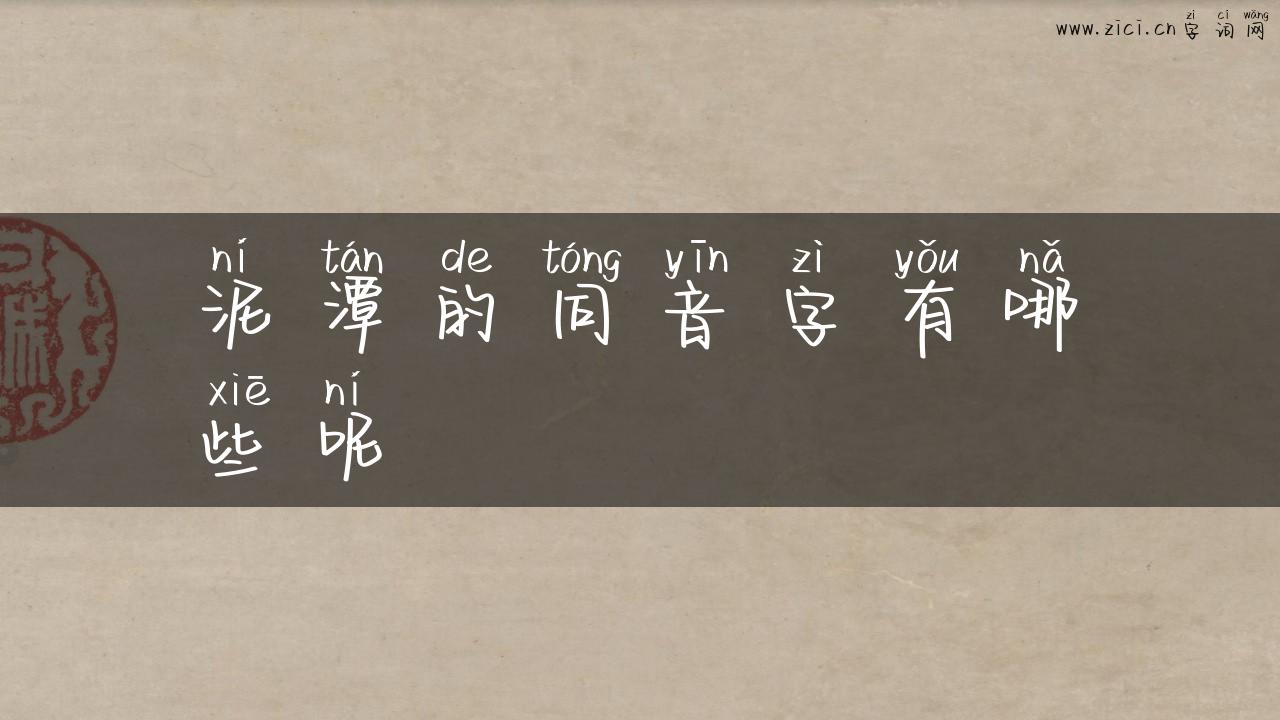 zì cí wǎng
www.zici.cn 字 词 网
ní tán de tóng yīn zì yǒu nǎ
泥 潭 的 同 音 字 有 哪
xiē ní
些 呢